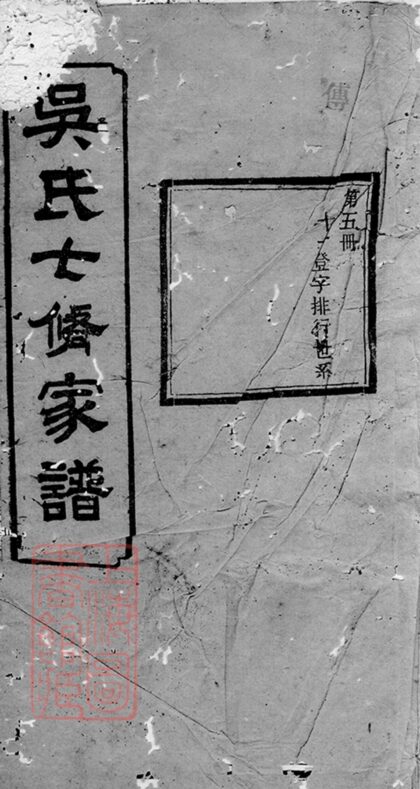 傳
第五冊
十一登字排行世系
吳氏七脩家譜